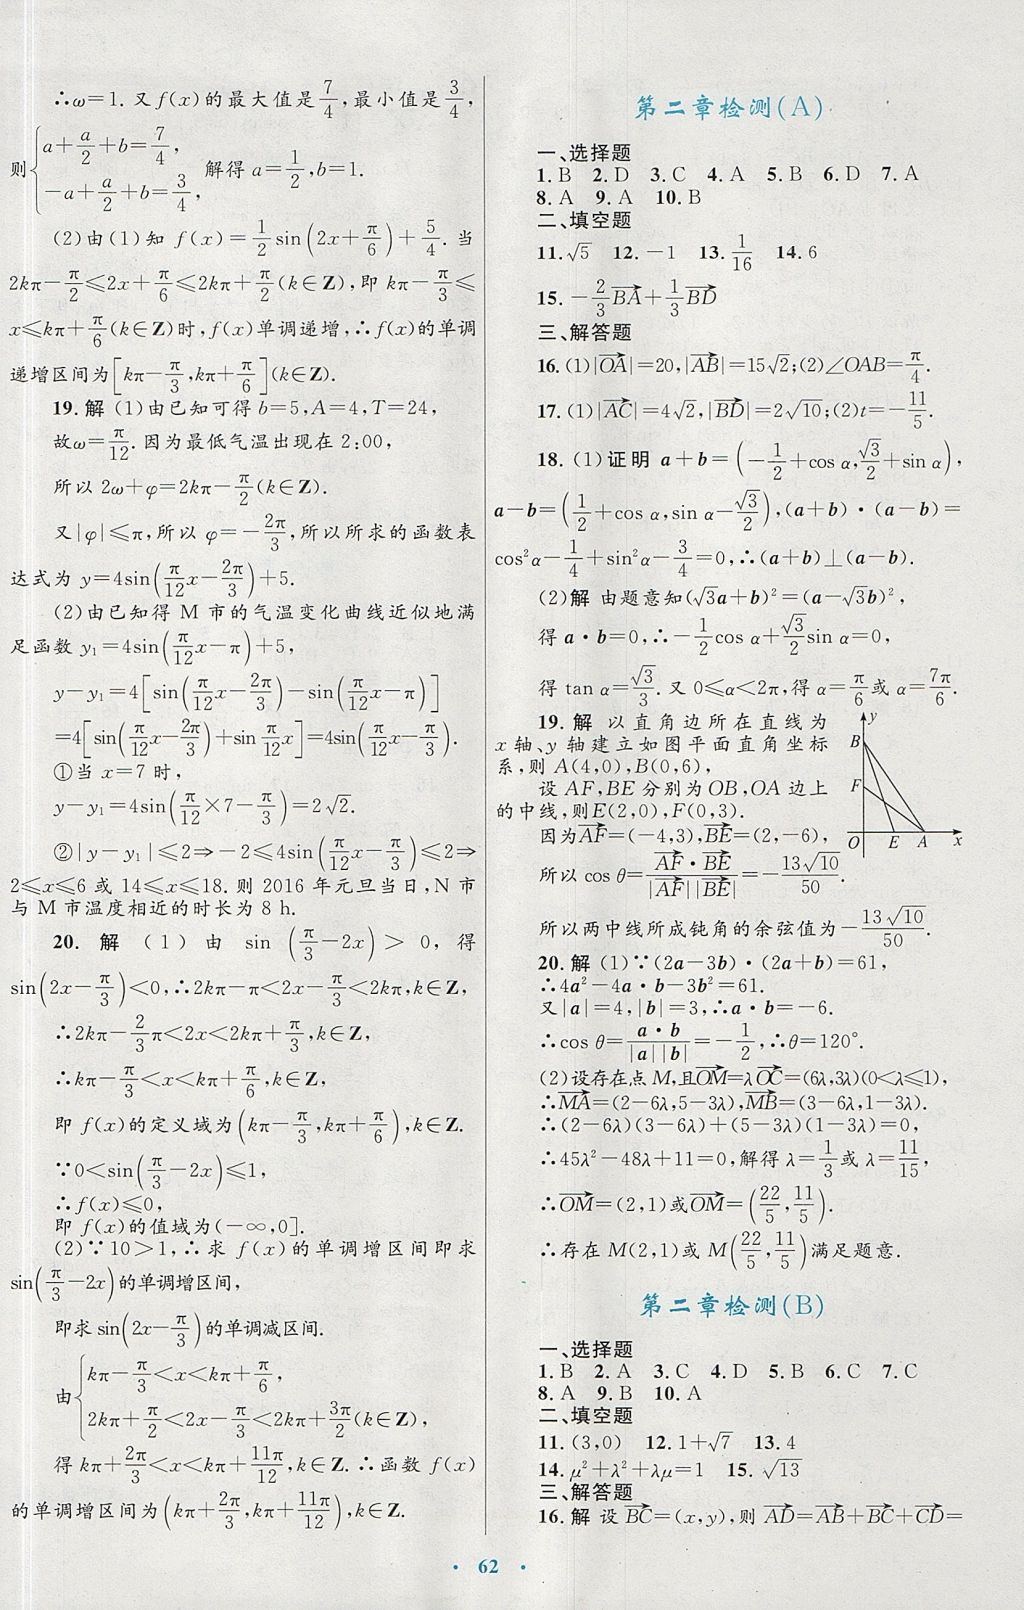 ∴ω=1. 又 f(x)的最大值是7/4,最小值是3/4,
则{a+a/2+b=7/4, -a+a/2+b=3/4, 解得 a=1/2,b=1.
(2)由(1)知 f(x)=1/2 sin(2x+π/6)+5/4. 当
2kπ-π/2≤2x+π/6≤2kπ+π/2(k∈Z),即 kπ-π/3≤
x≤kπ+π/6(k∈Z)时,f(x)单调递增,∴f(x)的单调
递增区间为[kπ-π/3,kπ+π/6](k∈Z).
19.解 (1)由已知可得 b=5,A=4,T=24,
故ω=π/12.因为最低气温出现在 2:00,
所以 2ω+φ=2kπ-π/2(k∈Z).
又|φ|≤π,所以 φ=-2π/3,所以所求的函数表
达式为 y=4sin(π/12 x-2π/3)+5.
(2)由已知得 M 市的气温变化曲线近似地满
足函数 y₁=4sin(π/12 x-π)+5,
y-y₁=4[sin(π/12 x-2π/3)-sin(π/12 x-π)]
=4[sin(π/12 x-2π/3)+sin π/12 x]=4sin(π/12 x-π/3).
①当 x=7 时,
y-y₁=4sin(π/12×7-π/3)=2√2.
②|y-y₁|≤2⇒-2≤4sin(π/12 x-π/3)≤2⇒
2≤x≤6 或 14≤x≤18.则 2016 年元旦当日,N 市
与 M 市温度相近的时长为 8 h.
20. 解 (1) 由 sin (π/3-2x)>0, 得
sin(2x-π/3)<0,∴2kπ-π<2x-π/3<2kπ,k∈Z,
∴2kπ-2/3π<2x<2kπ+π/3,k∈Z,
∴kπ-π/3<x<kπ+π/6,k∈Z,
即 f(x)的定义域为(kπ-π/3,kπ+π/6),k∈Z.
∵0<sin(π/3-2x)≤1,
∴f(x)≤0,
即 f(x)的值域为(-∞,0].
(2)∵10>1,∴求 f(x)的单调增区间即求
sin(π/3-2x)的单调增区间,
即求sin(2x-π/3)的单调减区间.
由{kπ-π/3<x<kπ+π/6, 2kπ+π/2<2x-π/3<2kπ+3π/2(k∈Z),
得 kπ+2π/3<x<kπ+11π/12,k∈Z.∴函数 f(x)
的单调增区间为(kπ+2π/3,kπ+11π/12),k∈Z.
第二章检测(A)
一、选择题
1.B 2.D 3.C 4.A 5.B 6.D 7.A
8.A 9.A 10.B
二、填空题
11.√5 12.-1 13.1/16 14.6
15.-2/3 BA→+1/3 BD→
三、解答题
16.(1)|OA→|=20,|AB→|=15√2;(2)∠OAB=π/4.
17.(1)|AC→|=4√2,|BD→|=2√10;(2)t=-11/5.
18.(1)证明 a+b=(-1/2+cos α,√3/2+sin α),
a-b=(1/2+cos α,sin α-√3/2),(a+b)·(a-b)=
cos²α-1/4+sin²α-3/4=0,∴(a+b)⊥(a-b).
(2)解 由题意知(√3a+b)²=(a-√3b)²,
得 a·b=0,∴-1/2cos α+√3/2 sin α=0,
得 tan α=√3/3.又 0≤α<2π,得 α=π/6或 α=7π/6.
19.解 以直角边所在直线为
x 轴、y 轴建立如图平面直角坐标
系,则 A(4,0),B(0,6),
设 AF,BE 分别为 OB,OA 边上
的中线,则E(2,0),F(0,3).
因为AF→=(-4,3),BE→=(2,-6),
y
B
F
O E A x
所以 cos θ=AF→·BE→/|AF→||BE→|=-13√10/50.
所以两中线所成钝角的余弦值为-13√10/50.
20.解 (1)∵(2a-3b)·(2a+b)=61,
∴4a²-4a·b-3b²=61.
又|a|=4,|b|=3,∴a·b=-6.
∴cos θ=a·b/|a||b|=-1/2,∴θ=120°.
(2)设存在点 M,且OM→=λOC→=(6λ,3λ)(0<λ≤1),
∴MA→=(2-6λ,5-3λ),MB→=(3-6λ,1-3λ).
∴(2-6λ)(3-6λ)+(5-3λ)(1-3λ)=0,
∴45λ²-48λ+11=0,解得 λ=1/3或 λ=11/15,
∴OM→=(2,1)或OM→=(22/5,11/5).
∴存在 M(2,1)或 M(22/5,11/5)满足题意.
第二章检测(B)
一、选择题
1.B 2.A 3.C 4.D 5.B 6.C 7.C
8.A 9.B 10.A
二、填空题
11.(3,0) 12.1+√7 13.4
14.μ²+λ²+λμ=1 15.√13
三、解答题
16.解 设 BC→=(x,y),则 AD→=AB→+BC→+CD→=
· 62 ·